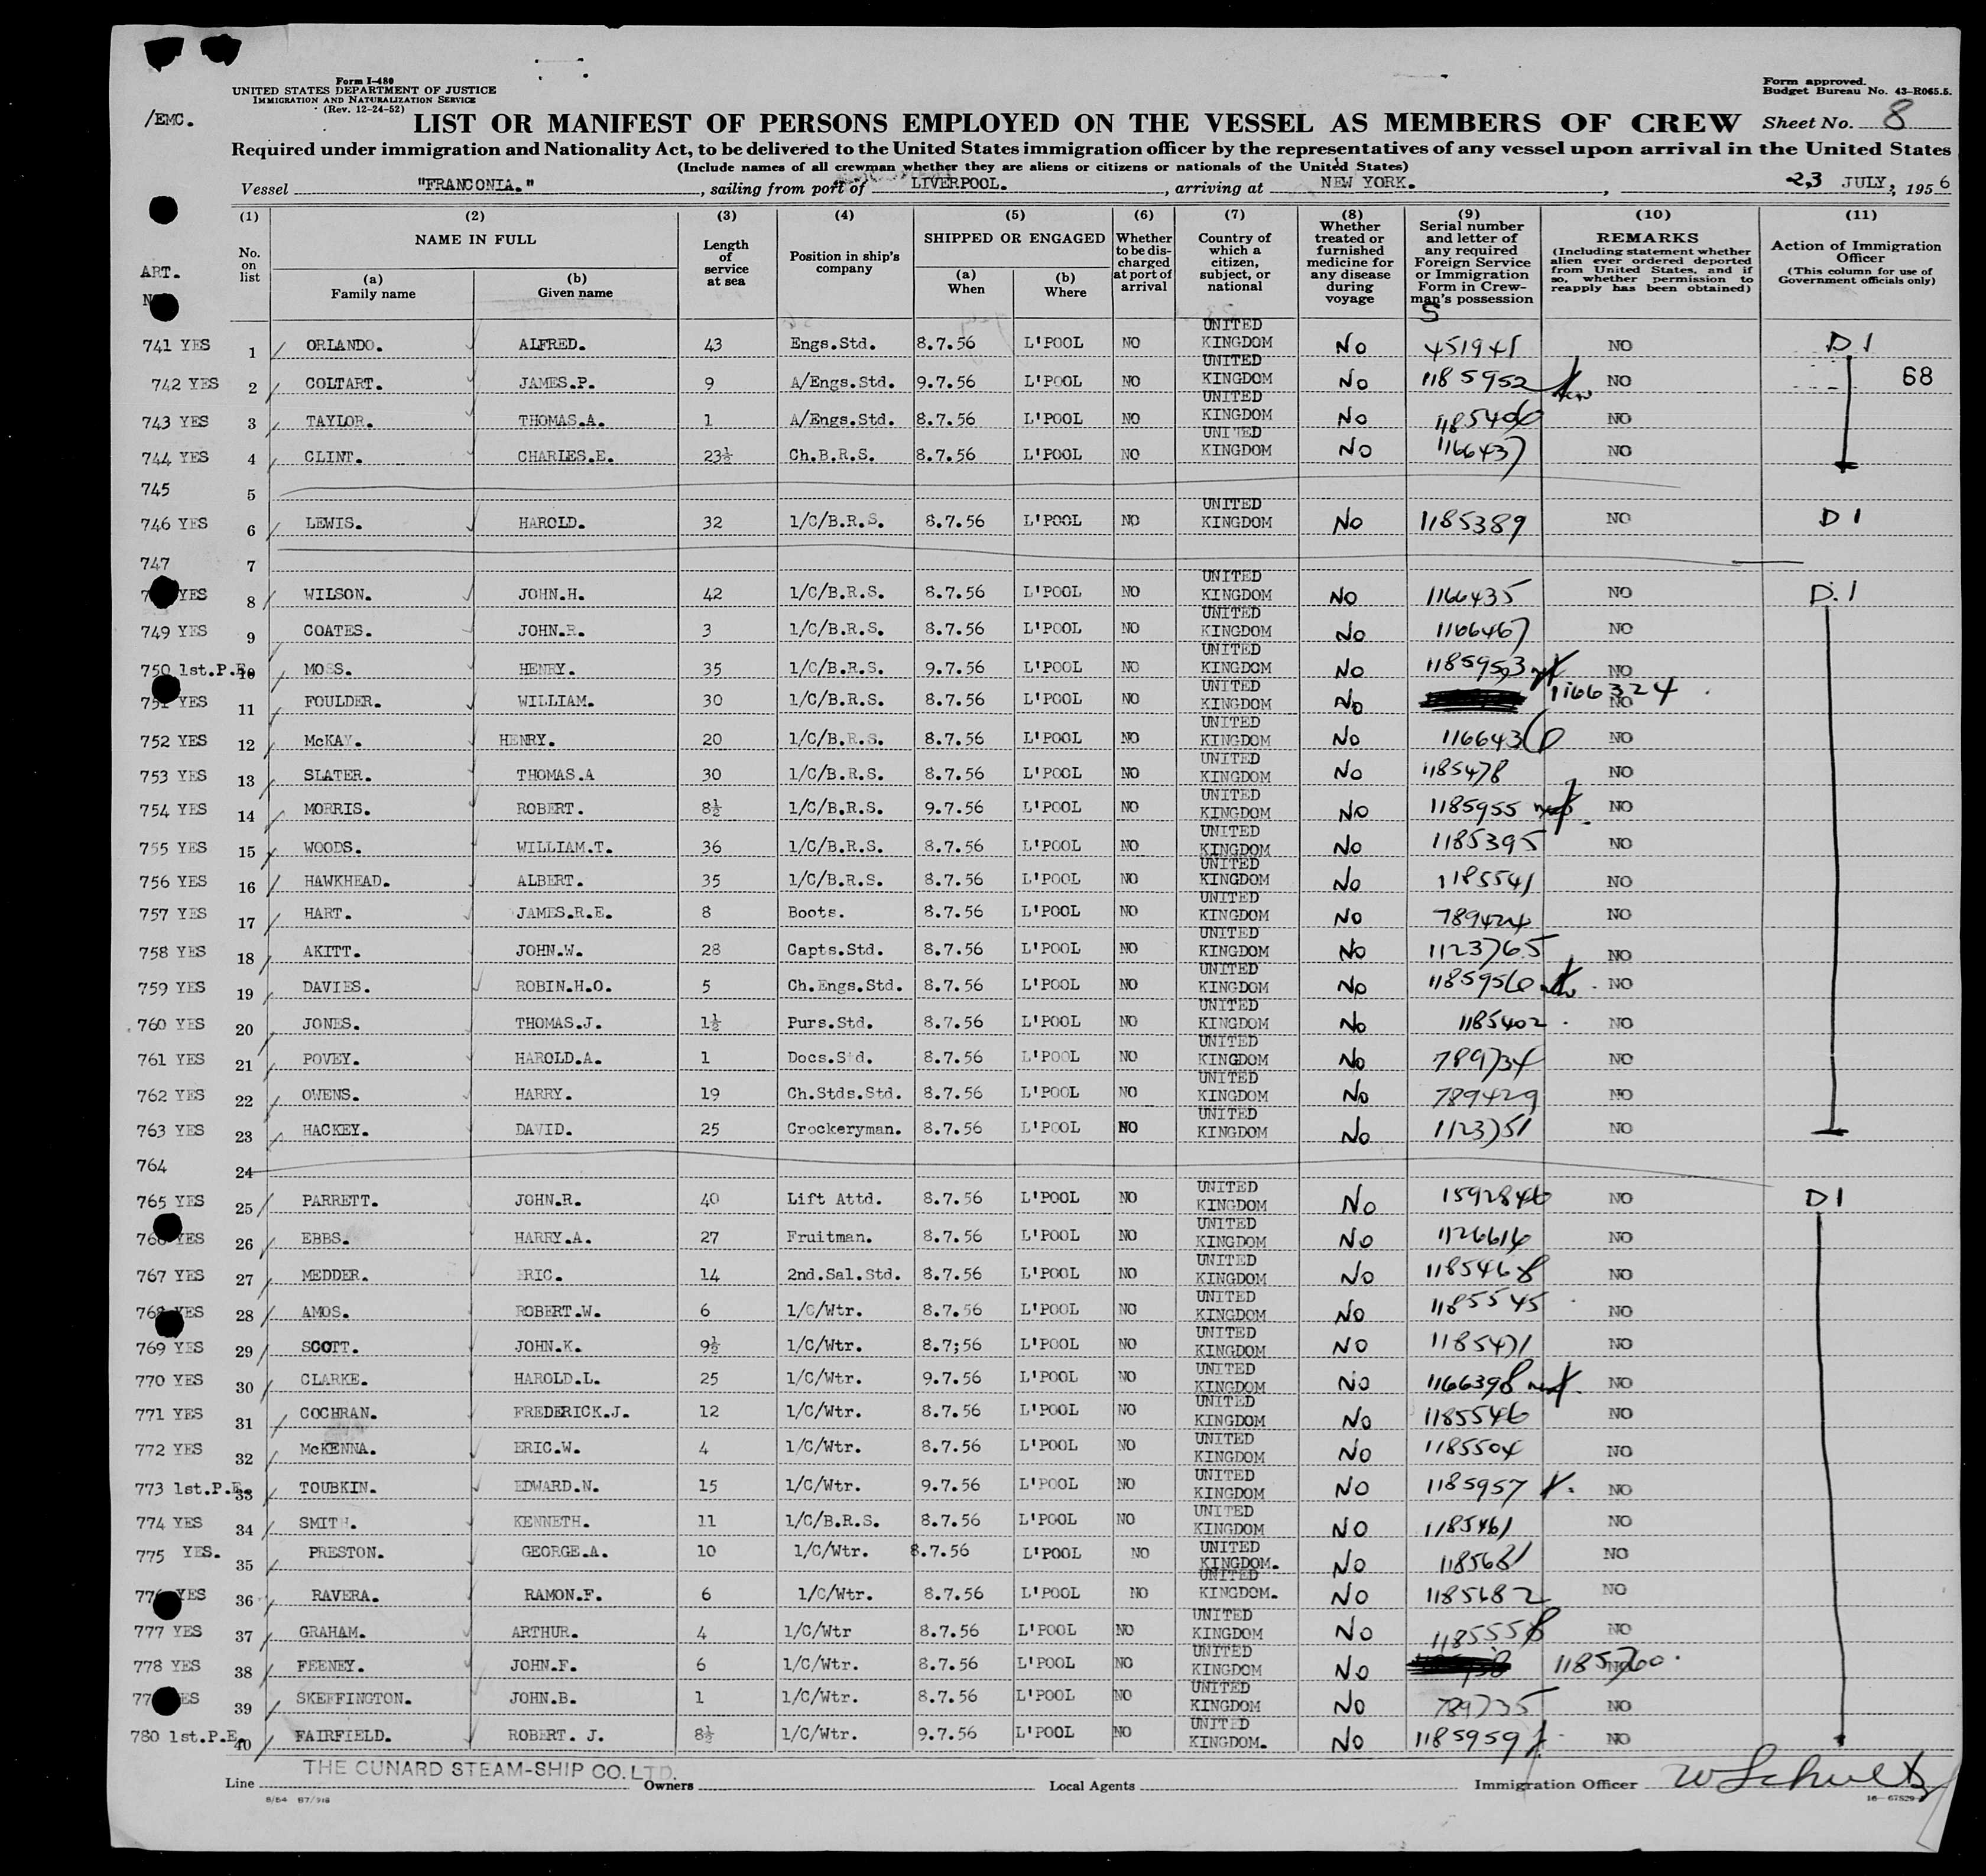 Form I-480
UNITED STATES DEPARTMENT OF JUSTICE
IMMIGRATION AND NATURALIZATION SERVICE
(Rev. 12-24-52)
Form approved.
Budget Bureau No. 43-R065.5.
/EMC.
LIST OR MANIFEST OF PERSONS EMPLOYED ON THE VESSEL AS MEMBERS OF CREW Sheet No. 8
Required under immigration and Nationality Act, to be delivered to the United States immigration officer by the representatives of any vessel upon arrival in the United States
(Include names of all crewman whether they are aliens or citizens or nationals of the United States)
Vessel "FRANCONIA." , sailing from port of LIVERPOOL. , arriving at NEW YORK. , 23 JULY, , 1956
(1) No. on list
(2) NAME IN FULL
(a) Family name
(b) Given name
(3) Length of service at sea
(4) Position in ship's company
(5) SHIPPED OR ENGAGED
(a) When
(b) Where
(6) Whether to be discharged at port of arrival
(7) Country of which a citizen, subject, or national
(8) Whether treated or furnished medicine for any disease during voyage
(9) Serial number and letter of any required Foreign Service or Immigration Form in Crewman's possession
(10) REMARKS (Including statement whether alien ever ordered deported from United States, and if so, whether permission to reapply has been obtained)
(11) Action of Immigration Officer (This column for use of Government officials only)
ART.
S
741 YES 1 ORLANDO. ALFRED. 43 Engs.Std. 8.7.56 L'POOL NO UNITED KINGDOM No 451941 NO D 1
742 YES 2 COLTART. JAMES.P. 9 A/Engs.Std. 9.7.56 L'POOL NO UNITED KINGDOM No 1185952 NO 68
743 YES 3 TAYLOR. THOMAS.A. 1 A/Engs.Std. 8.7.56 L'POOL NO UNITED KINGDOM No 1185406 NO
744 YES 4 CLINT. CHARLES.E. 23½ Ch.B.R.S. 8.7.56 L'POOL NO UNITED KINGDOM No 1166437 NO
745 5
746 YES 6 LEWIS. HAROLD. 32 1/C/B.R.S. 8.7.56 L'POOL NO UNITED KINGDOM No 1185389 NO D 1
747 7
YES 8 WILSON. JOHN.H. 42 1/C/B.R.S. 8.7.56 L'POOL NO UNITED KINGDOM No 1166435 NO D.1
749 YES 9 COATES. JOHN.R. 3 1/C/B.R.S. 8.7.56 L'POOL NO UNITED KINGDOM No 1166467 NO
750 1st.P.E. 10 MOSS. HENRY. 35 1/C/B.R.S. 9.7.56 L'POOL NO UNITED KINGDOM No 1185953 NO
751 YES 11 FOULDER. WILLIAM. 30 1/C/B.R.S. 8.7.56 L'POOL NO UNITED KINGDOM No 1166324 NO
752 YES 12 McKAY. HENRY. 20 1/C/B.R.S. 8.7.56 L'POOL NO UNITED KINGDOM No 1166436 NO
753 YES 13 SLATER. THOMAS.A 30 1/C/B.R.S. 8.7.56 L'POOL NO UNITED KINGDOM No 1185478 NO
754 YES 14 MORRIS. ROBERT. 8½ 1/C/B.R.S. 9.7.56 L'POOL NO UNITED KINGDOM No 1185955 NO
755 YES 15 WOODS. WILLIAM.T. 36 1/C/B.R.S. 8.7.56 L'POOL NO UNITED KINGDOM No 1185395 NO
756 YES 16 HAWKHEAD. ALBERT. 35 1/C/B.R.S. 8.7.56 L'POOL NO UNITED KINGDOM No 1185541 NO
757 YES 17 HART. JAMES.R.E. 8 Boots. 8.7.56 L'POOL NO UNITED KINGDOM No 789424 NO
758 YES 18 AKITT. JOHN.W. 28 Capts.Std. 8.7.56 L'POOL NO UNITED KINGDOM No 1123765 NO
759 YES 19 DAVIES. ROBIN.H.O. 5 Ch.Engs.Std. 8.7.56 L'POOL NO UNITED KINGDOM No 1185956 NO
760 YES 20 JONES. THOMAS.J. 1½ Purs.Std. 8.7.56 L'POOL NO UNITED KINGDOM No 1185402 NO
761 YES 21 POVEY. HAROLD.A. 1 Docs.S d. 8.7.56 L'POOL NO UNITED KINGDOM No 789734 NO
762 YES 22 OWENS. HARRY. 19 Ch.Stds.Std. 8.7.56 L'POOL NO UNITED KINGDOM No 789429 NO
763 YES 23 HACKEY. DAVID. 25 Crockeryman. 8.7.56 L'POOL NO UNITED KINGDOM No 1123751 NO
764 24
765 YES 25 PARRETT. JOHN.R. 40 Lift Attd. 8.7.56 L'POOL NO UNITED KINGDOM No 1592846 NO D 1
766 YES 26 EBBS. HARRY.A. 27 Fruitman. 8.7.56 L'POOL NO UNITED KINGDOM No 1126616 NO
767 YES 27 MEDDER. ERIC. 14 2nd.Sal.Std. 8.7.56 L'POOL NO UNITED KINGDOM No 1185468 NO
768 YES 28 AMOS. ROBERT.W. 6 1/C/Wtr. 8.7.56 L'POOL NO UNITED KINGDOM No 1185545 NO
769 YES 29 SCOTT. JOHN.K. 9½ 1/C/Wtr. 8.7;56 L'POOL NO UNITED KINGDOM NO 1185471 NO
770 YES 30 CLARKE. HAROLD.L. 25 1/C/Wtr. 9.7.56 L'POOL NO UNITED KINGDOM No 1166398 NO
771 YES 31 COCHRAN. FREDERICK.J. 12 1/C/Wtr. 8.7.56 L'POOL NO UNITED KINGDOM No 1185546 NO
772 YES 32 McKENNA. ERIC.W. 4 1/C/Wtr. 8.7.56 L'POOL NO UNITED KINGDOM No 1185504 NO
773 1st.P.E. 33 TOUBKIN. EDWARD.N. 15 1/C/Wtr. 9.7.56 L'POOL NO UNITED KINGDOM No 1185957 NO
774 YES 34 SMITH. KENNETH. 11 1/C/B.R.S. 8.7.56 L'POOL NO UNITED KINGDOM No 1185461 NO
775 YES. 35 PRESTON. GEORGE.A. 10 1/C/Wtr. 8.7.56 L'POOL NO UNITED KINGDOM. No 1185681 NO
776 YES 36 RAVERA. RAMON.F. 6 1/C/Wtr. 8.7.56 L'POOL NO UNITED KINGDOM. No 1185682 NO
777 YES 37 GRAHAM. ARTHUR. 4 1/C/Wtr 8.7.56 L'POOL NO UNITED KINGDOM No 1185558 NO
778 YES 38 FEENEY. JOHN.F. 6 1/C/Wtr. 8.7.56 L'POOL NO UNITED KINGDOM No 1185760. NO
39 SKEFFINGTON. JOHN.B. 1 1/C/Wtr. 8.7.56 L'POOL NO UNITED KINGDOM No 789735 NO
780 1st.P.E. 40 FAIRFIELD. ROBERT. J. 8½ 1/C/Wtr. 9.7.56 L'POOL NO UNITED KINGDOM. No 1185959 NO
Line THE CUNARD STEAM-SHIP CO.LTD. Owners Local Agents Immigration Officer W Schultz
8/54 B7/918